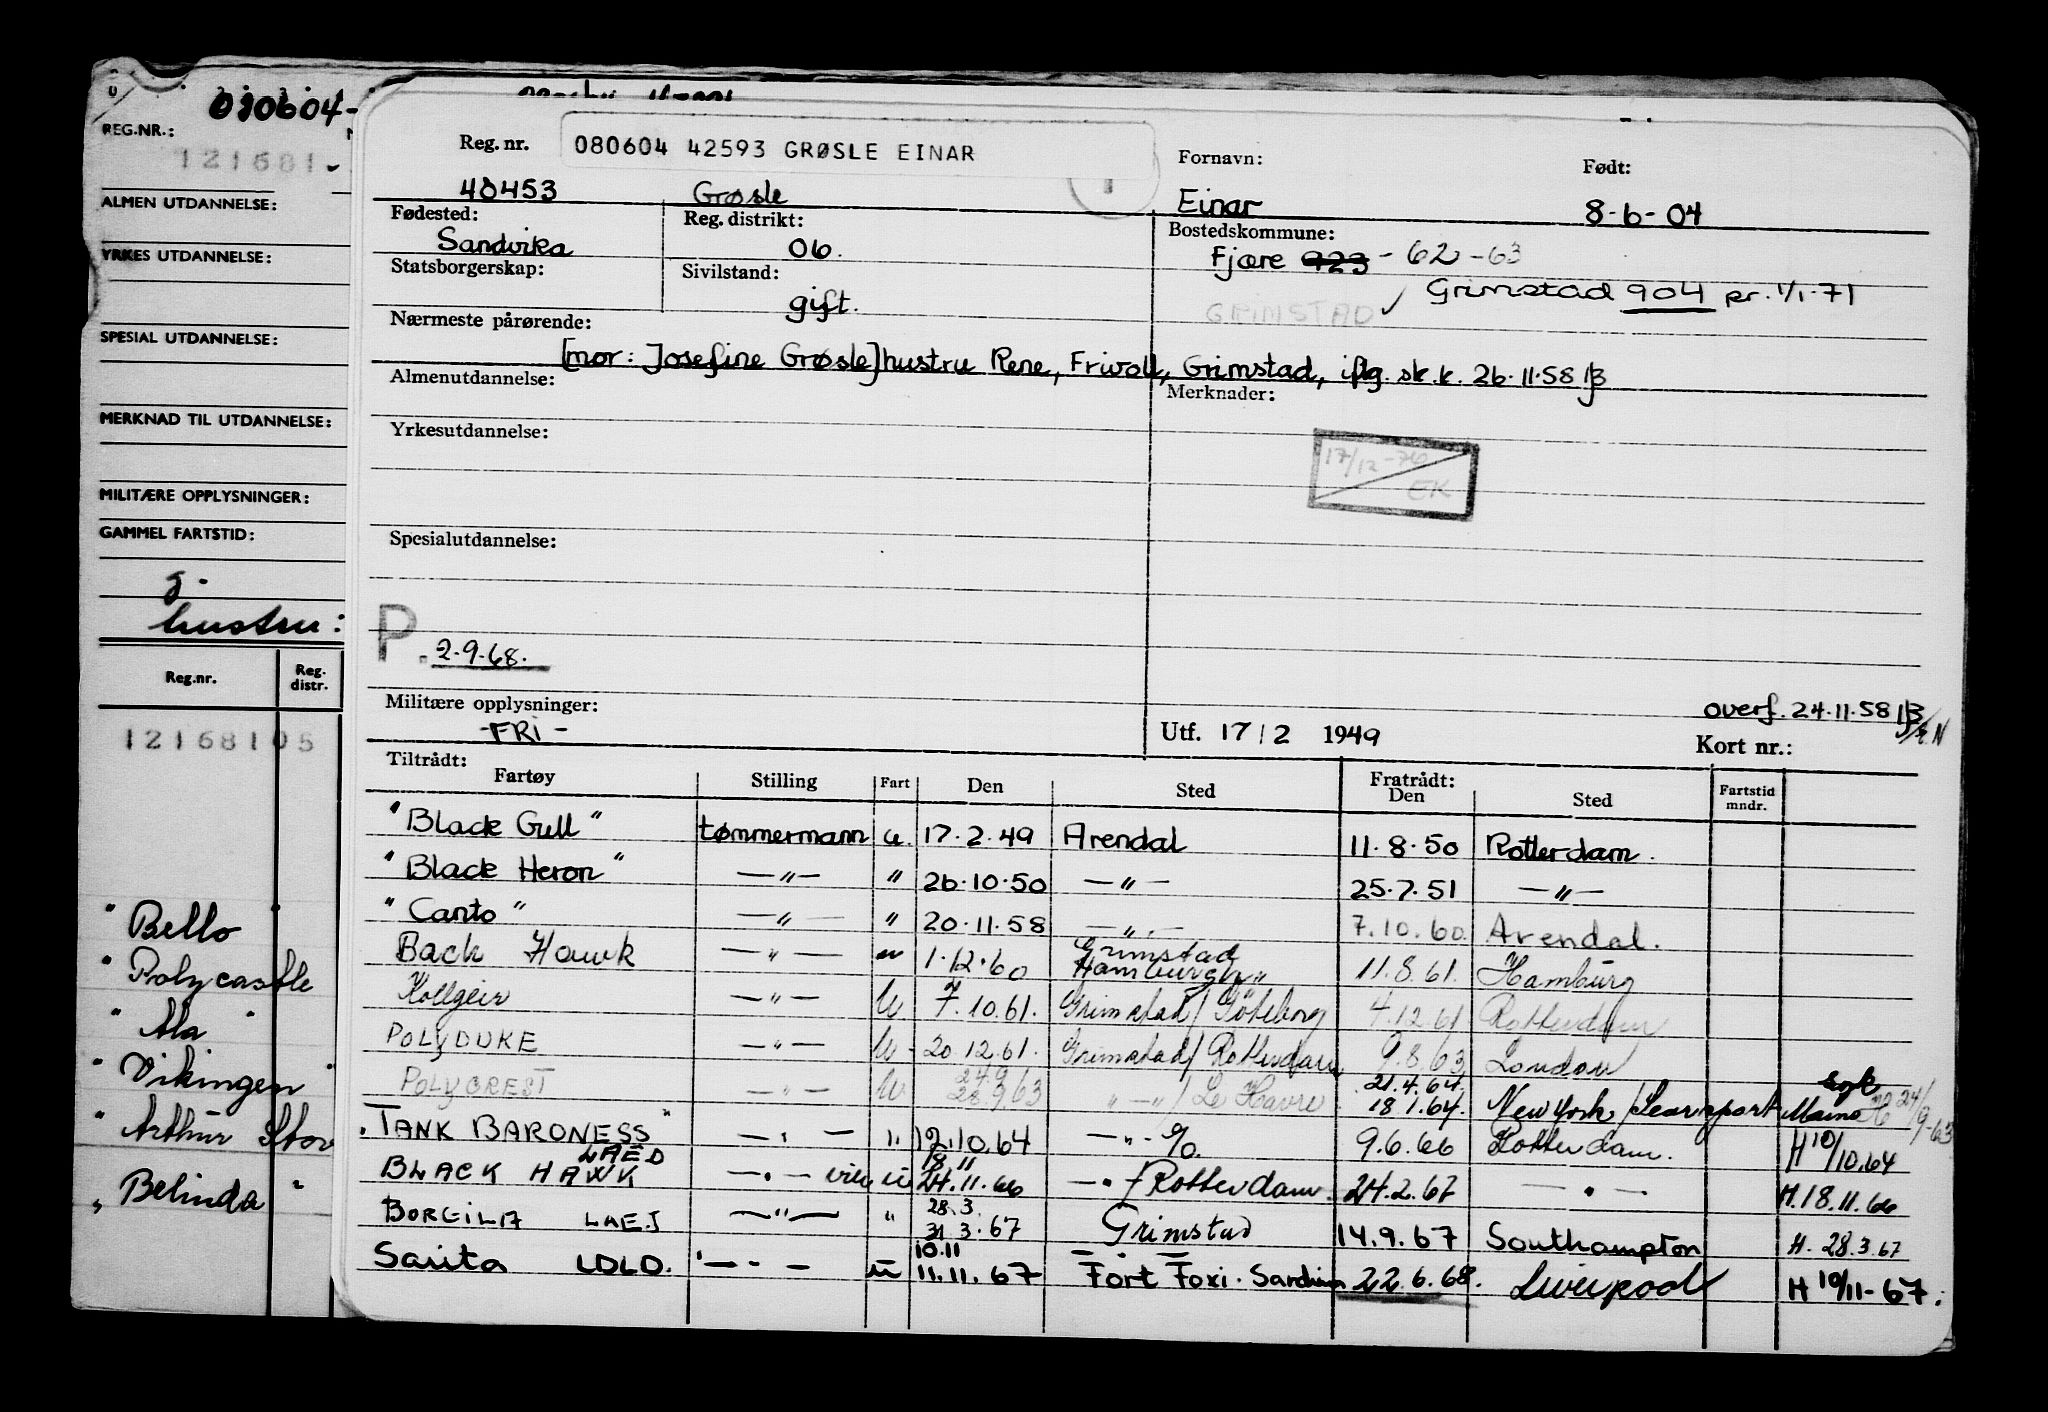 080604-
REG.NR.:
121681-
ALMEN UTDANNELSE:
YRKES UTDANNELSE:
SPESIAL UTDANNELSE:
MERKNAD TIL UTDANNELSE:
MILITÆRE OPPLYSNINGER:
GAMMEL FARTSTID:
g.
hustru:
Reg.nr. Reg. distr.
12168105
"Bello"
"Polycastle
"Ala"
"Vikingen"
"Arthur Stov
"Belinda"
Reg. nr. 080604 42593 GRØSLE EINAR Fornavn: Født:
40453 Grøsle 1 Einar 8-6-04
Fødested: Reg. distrikt: Bostedskommune:
Sandvika 06. Fjære 923 - 62-63
Statsborgerskap: Sivilstand: Grimstad 904 pr. 1/1-71
gift. GRIMSTAD ✓
Nærmeste pårørende:
[mor: Josefine Grøsle] hustru Rene, Frivoll, Grimstad, iflg. sk.k. 26.11.58 JB
Almenutdannelse: Merknader:
Yrkesutdannelse:
17/12-76
EK
Spesialutdannelse:
P. 2.9.68.
Militære opplysninger: overf. 24.11.58 JB
-FRI- Utf. 17/2 1949 Kort nr.:
Tiltrådt: Fratrådt:
Fartøy Stilling Fart Den Sted Den Sted Fartstid mndr.
"Black Gull" tømmermann u. 17.2.49 Arendal 11.8.50 Rotterdam.
"Black Heron" —"— " 26.10.50 —"— 25.7.51 —"—
"Canto" —"— " 20.11.58 —"— 7.10.60 Arendal.
Back Hawk —"— " 1.12.60 Grimstad Hamburgh " 11.8.61. Hamburg
Kollgeir —"— U 7.10.61. Grimstad/Göteborg 4.12.61 Rotterdam
POLYDUKE —"— U 20.12.61. Grimstad/Rotterdam 9.8.63 London
POLYCREST —"— U 24.9 28.9.63 "—"/Le Havre 21.4.64. 18.1.64. New York/Searsport Maine syk H 24/9-63
"TANK BARONESS" —"— " 12.10.64 —"— % 9.6.66 Rotterdam. H 10/10.64
BLACK HAWK LAED —"— u 18.11 24.11.66 —"—/Rotterdam. 24.2.67 —"— H.18.11.66
BORGILA LAEJ —"— " 28.3. 31.3.67 Grimstad 14.9.67 Southampton H. 28.3.67
Sarita LDLO. —"— u 10.11 11.11.67 Fort Foxi. Sardinia 22.6.68. Liverpool H 10/11-67.